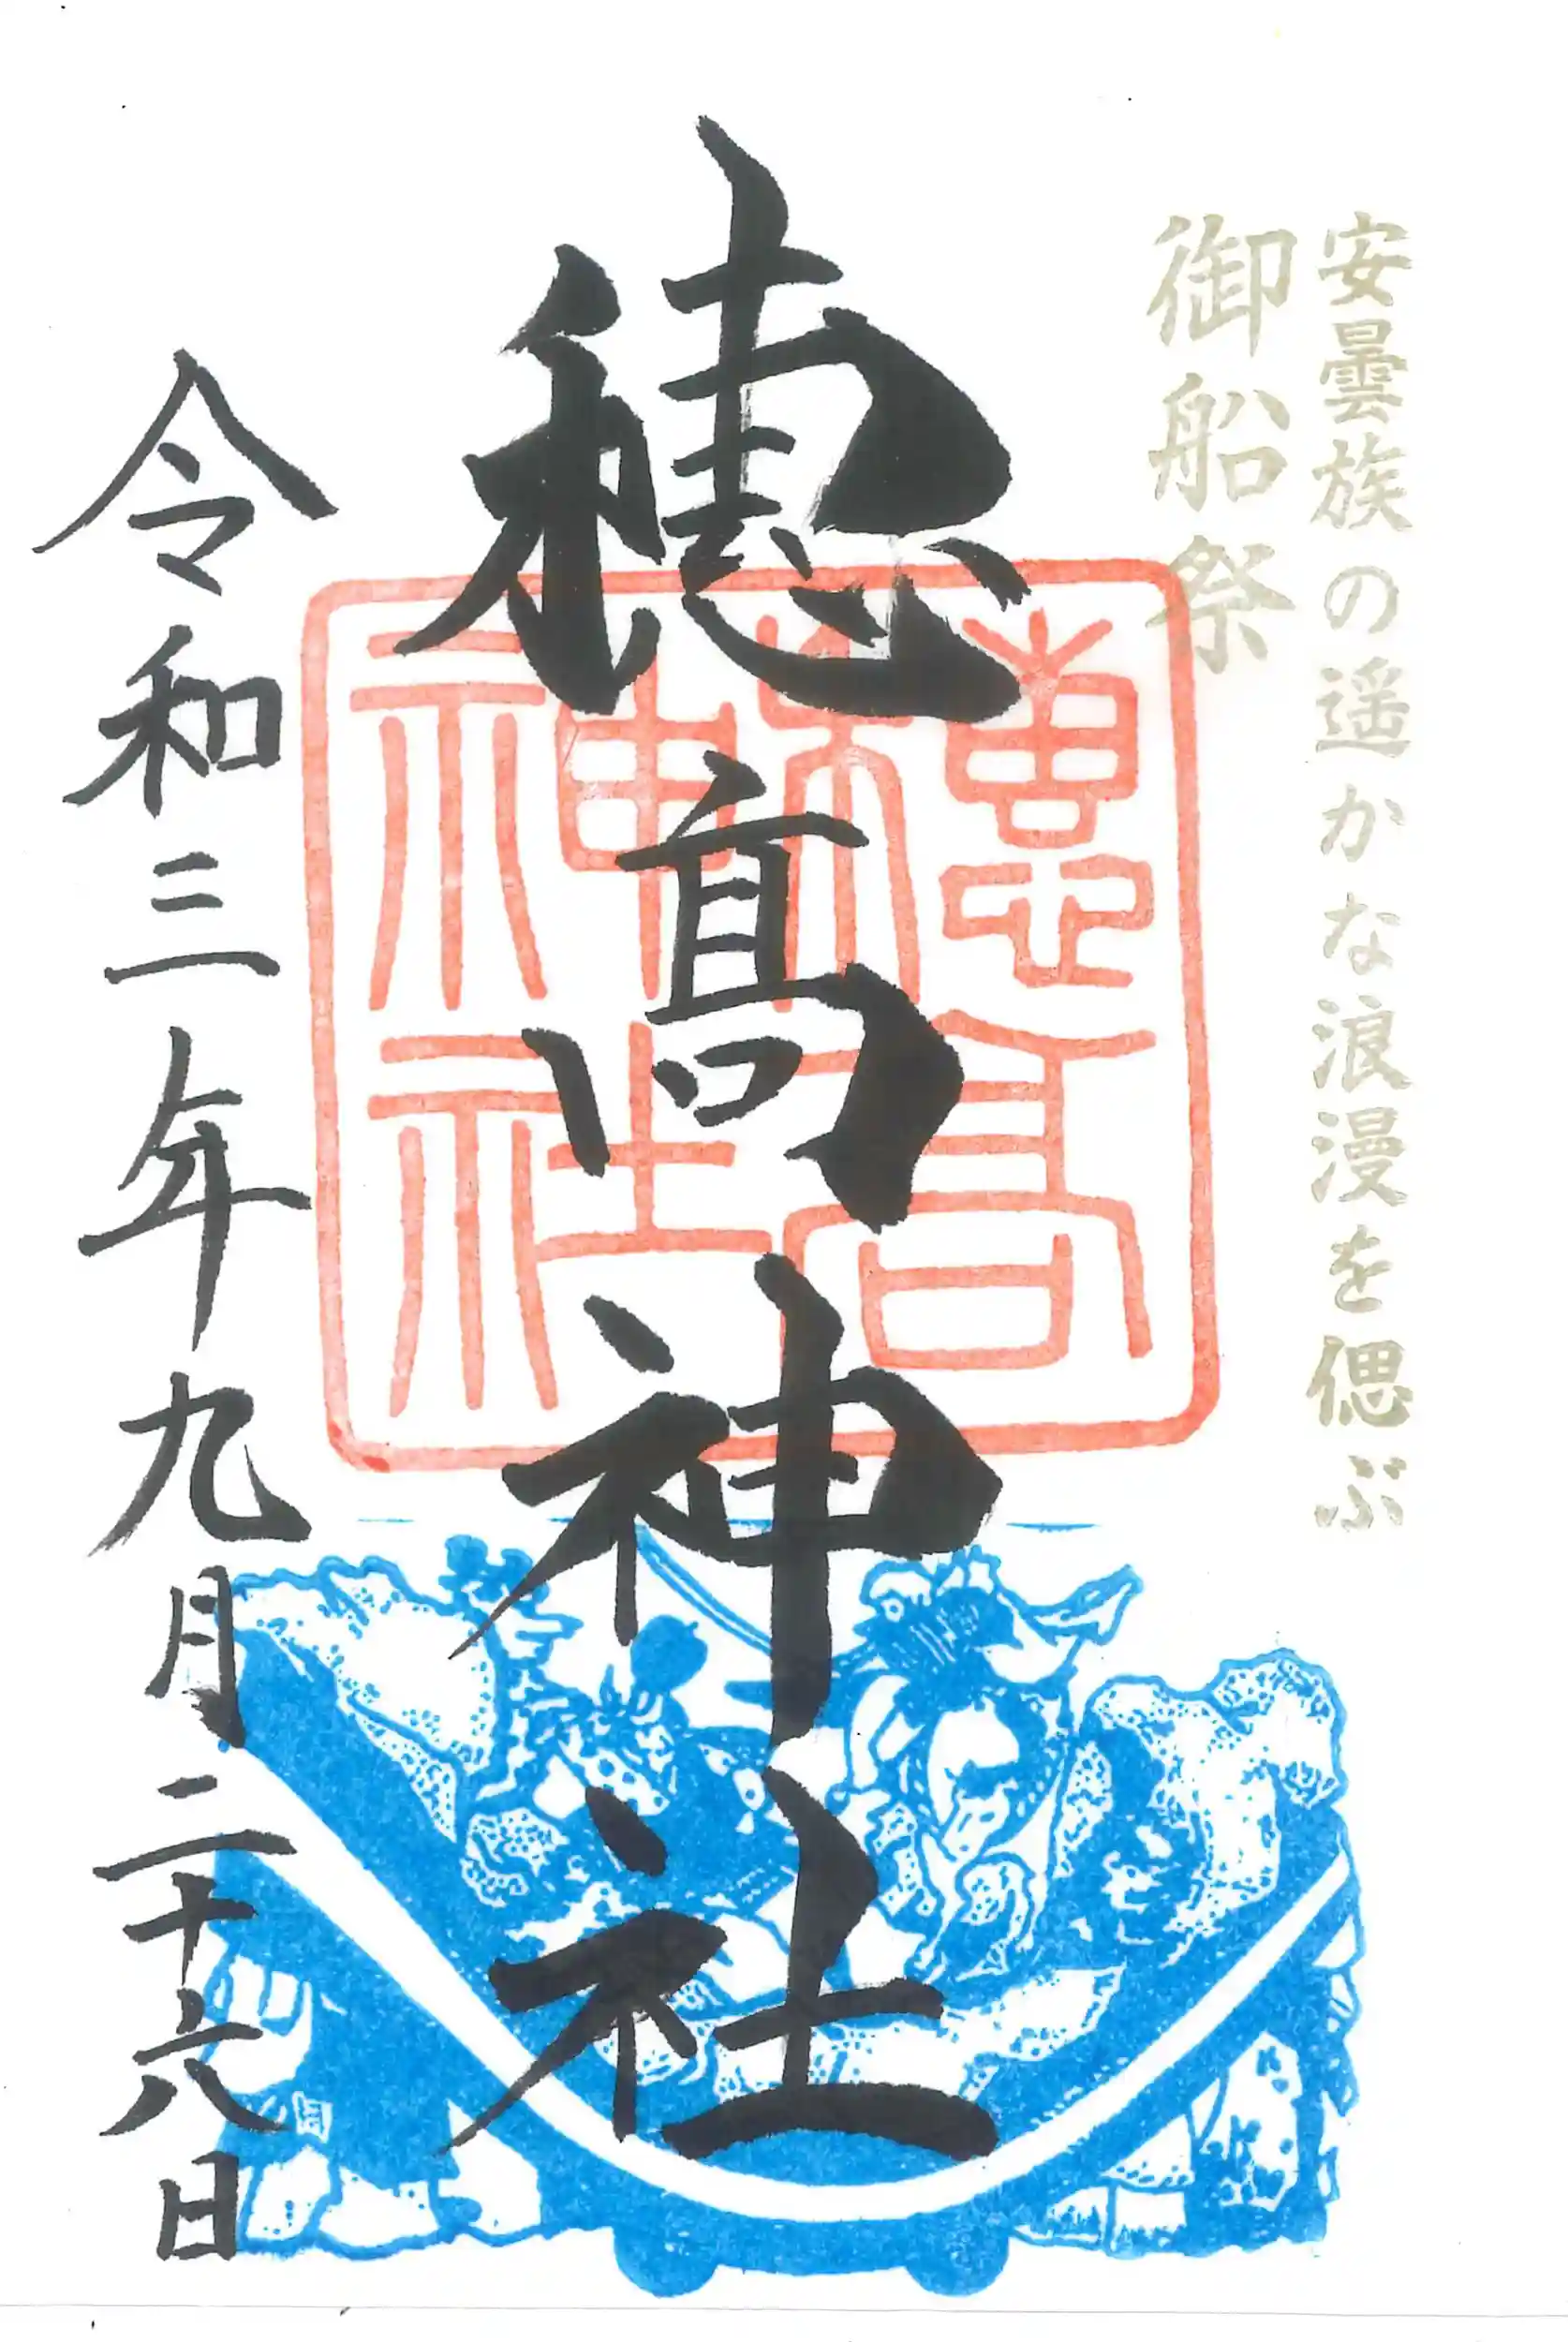 安曇族の遥かな浪漫を偲ぶ
御船祭
穂髙神社
穂高神社
令和三年九月二十六日